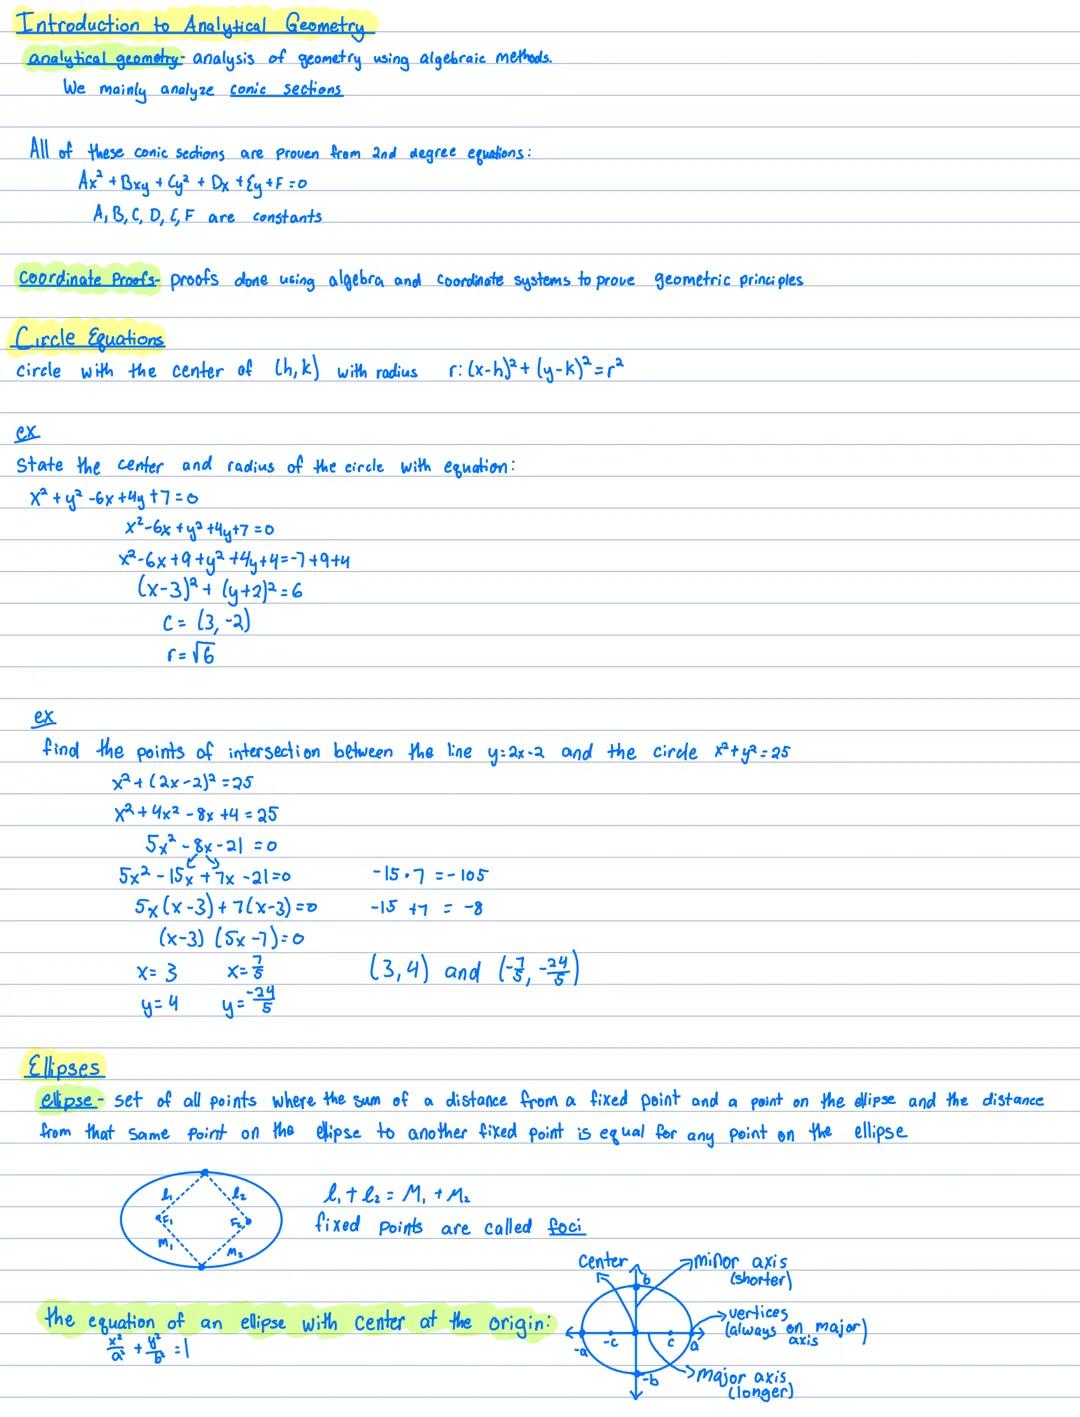 Introduction to Analytical Geometry
analytical geometry- analysis of geometry using algebraic methods.
We mainly analyze conic sections
All of these conic sections are proven from 2nd degree equations:
Ax² + Bxy + Cy² + Dx + Ey + F = 0
A, B, C, D, E, F are constants
Coordinate Proofs- proofs done using algebra and coordinate systems to prove geometric principles
Circle Equations
circle with the center of (h,k) with radius r: (x-h)² + (y-k)² = r²
ex
State the center and radius of the circle with equation:
x² + y² -6x + 4y + 7 = 0
x² -6x + y² + 4y + 7 = 0
x² -6x + 9 + y² + 4y + 4 = -7 + 9 + 4
(x-3)² + (y+2)² = 6
C = (3, -2)
r = √6
ex
find the points of intersection between the line y=2x-2 and the circle x²+y²=25
x² + (2x-2)² = 25
x² + 4x² - 8x + 4 = 25
5x² - 8x - 21 = 0
5x² - 15x + 7x - 21 = 0 -15·7 = -105
5x(x-3) + 7(x-3) = 0 -15 + 7 = -8
(x-3) (5x-7) = 0
x = 3 x = 7/5 (3,4) and (-7/5, -24/5)
y = 4 y = -24/5
Ellipses
ellipse - set of all points where the sum of a distance from a fixed point and a point on the ellipse and the distance
from that same point on the ellipse to another fixed point is equal for any point on the ellipse
l₁ l₂
F₁ F₂
M₁ M₂
l₁ + l₂ = M₁ + M₂
fixed points are called foci
the equation of an ellipse with center at the origin:
x²/a² + y²/b² = 1
center
b
minor axis
(shorter)
vertices
(always on major
axis)
-a -c c a
-b
major axis
(longer)